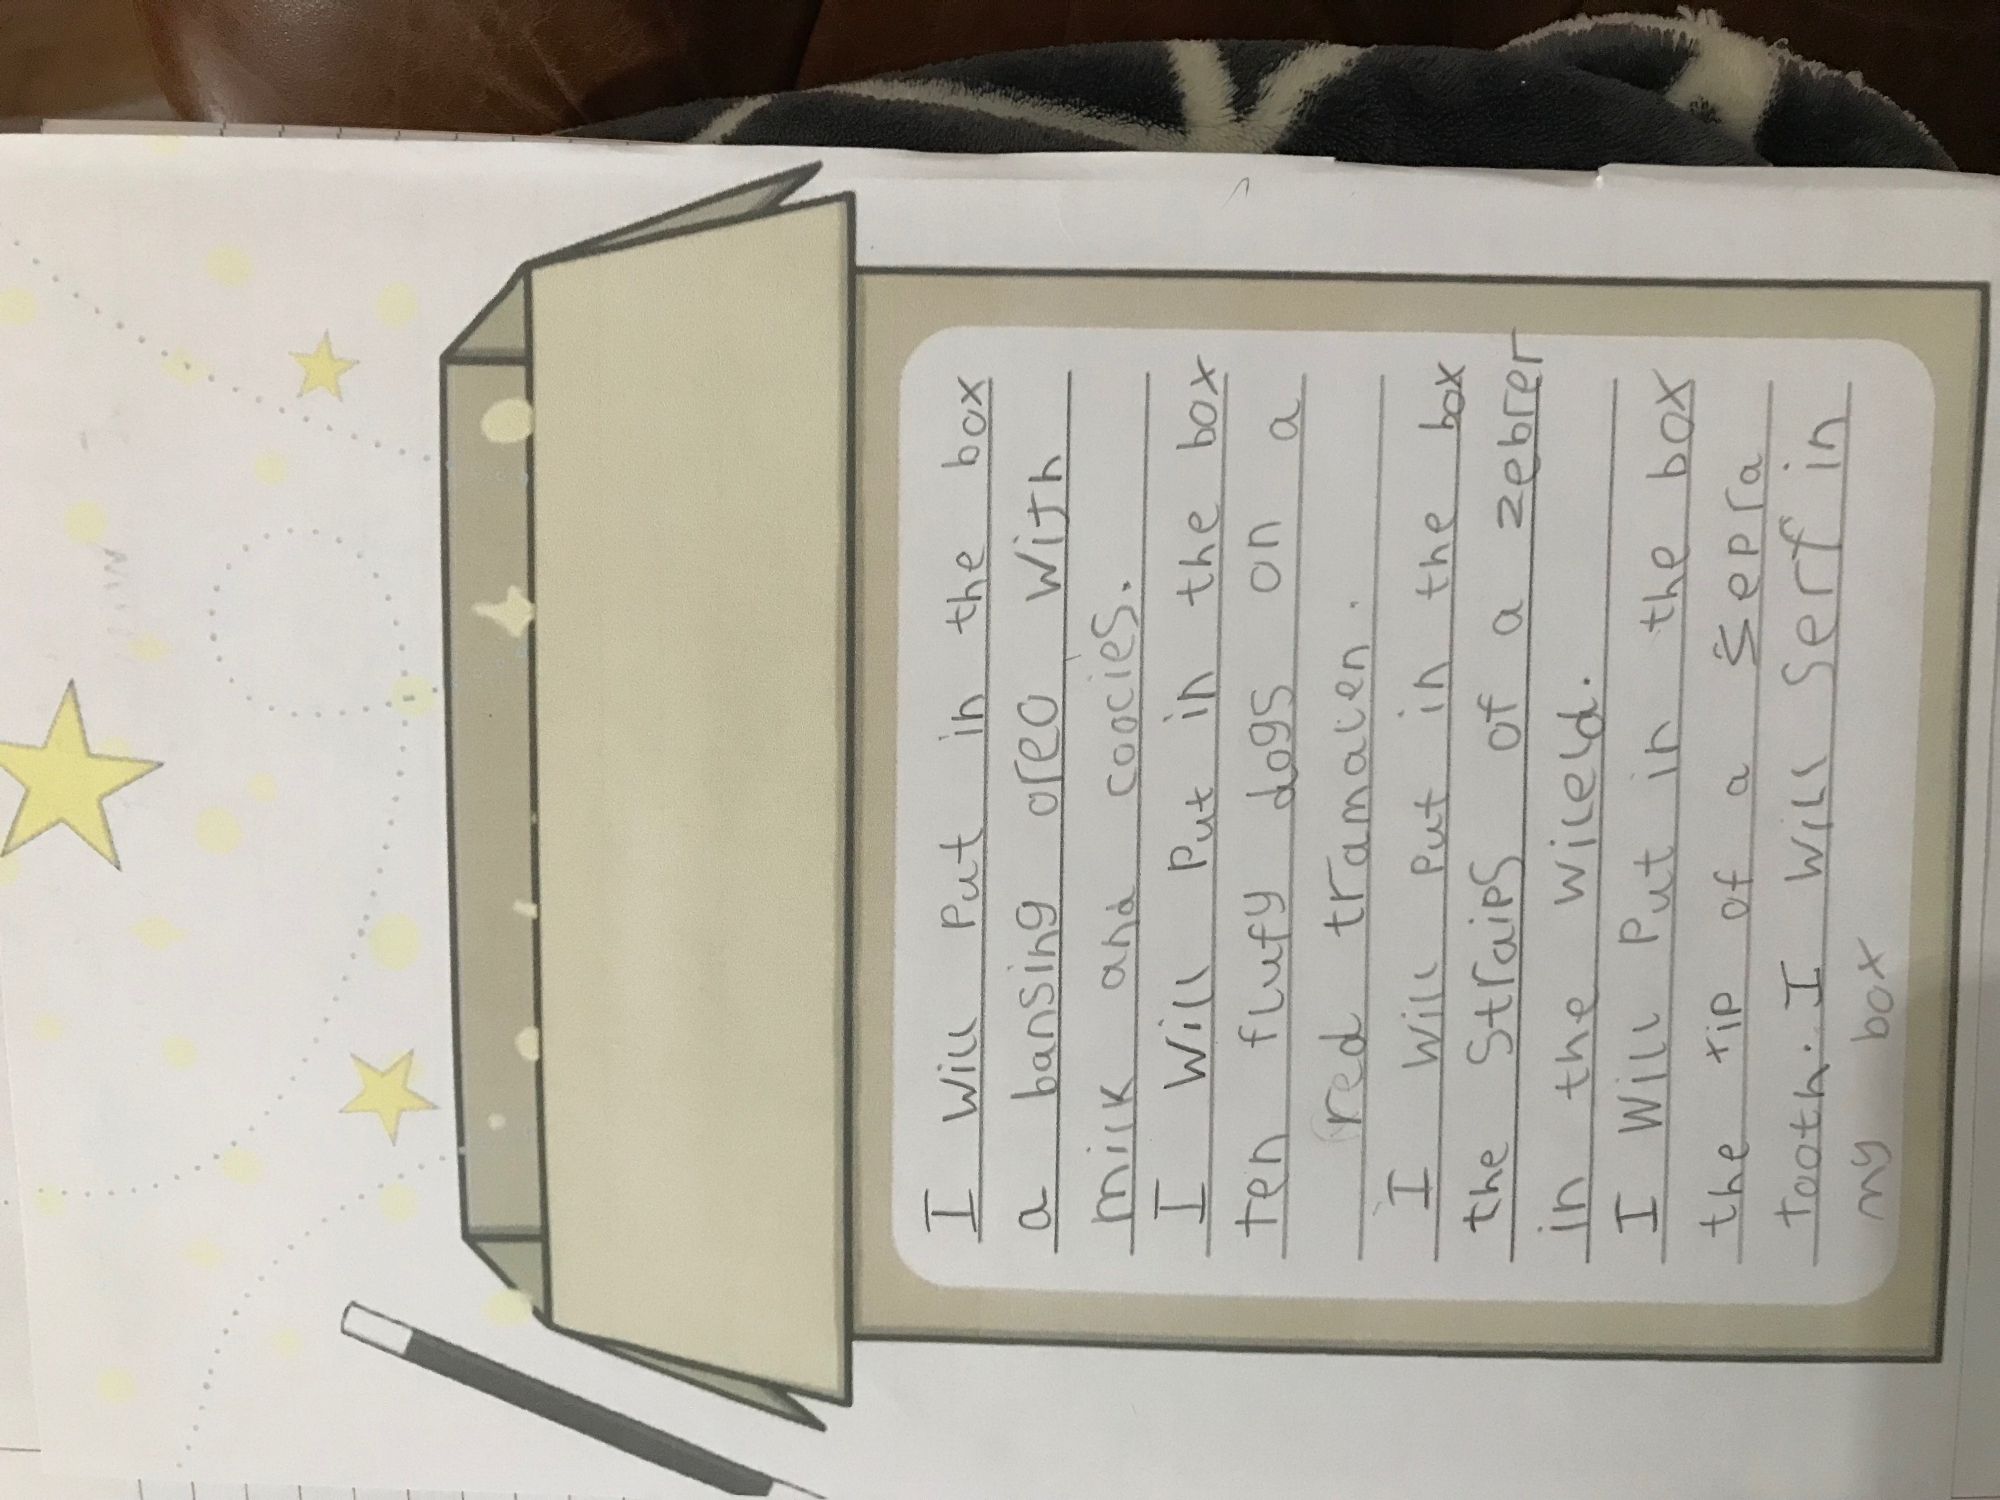 I will put in the box
a bansing oreo with
milk and coocies.
I will put in the box
ten flufy dogs on a
red tramalen.
I will put in the box
the straips of a zebrer
in the wileld.
I will put in the box
the tip of a sepra
tooth. I will serf in
my box